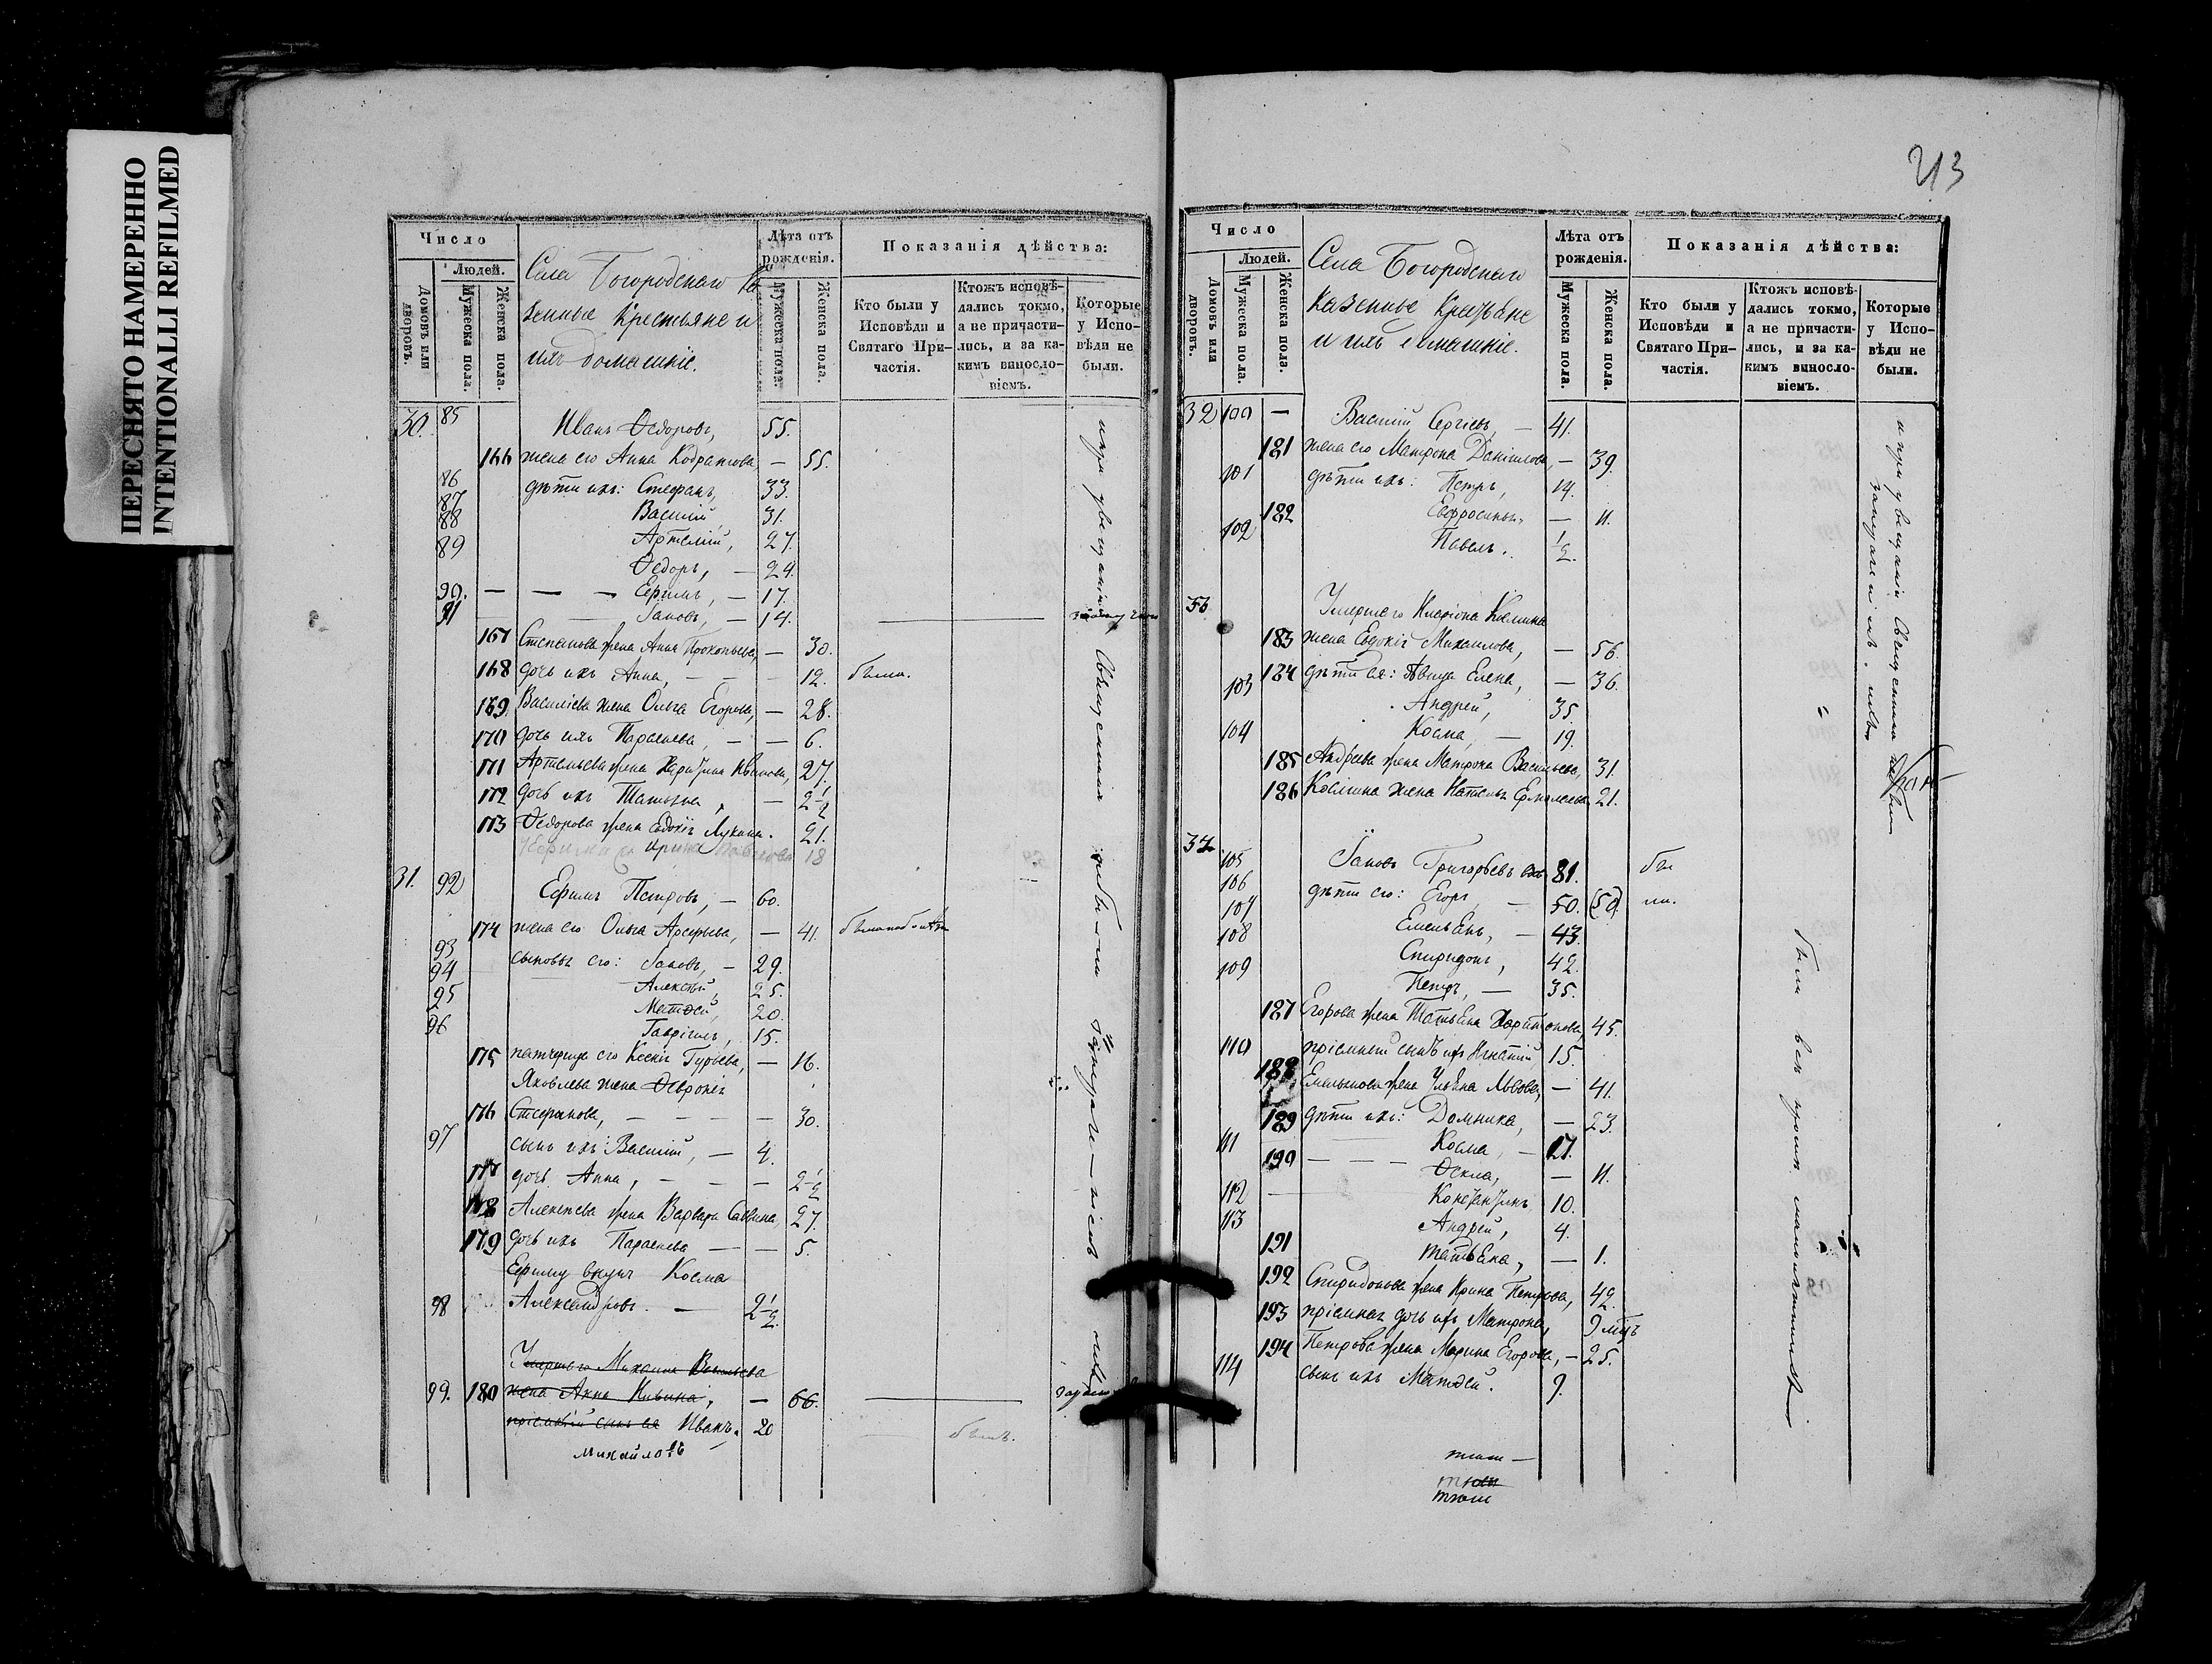 ПЕРЕСНЯТО НАМЕРЕННО
INTENTIONALLI REFILMED
Число
Людей.
Домовъ или дворовъ.
Мужеска пола.
Женска пола.
Села Богородскаго Ка
зенные Крестьяне и
ихъ домашніе.
Лѣта отъ рожденія.
Мужеска пола.
Женска пола.
Показанія дѣйства:
Кто были у Исповѣди и Святаго Причастія.
Ктожъ исповѣдались токмо, а не причастились, и за какимъ винословіемъ.
Которые у Исповѣди не были.
30. 85 Иванъ Ѳедоровъ, 55.
166 жена его Анна Кодратова, — 55.
86 дѣти ихъ: Стефанъ, 33.
87 Василій, 31.
88 Артемій, 27.
89 Ѳедоръ, — 24.
90. — — — Ефимъ, — 17.
91 — Іаковъ, — 14.
167 Степанова жена Анна Прокопьева, — 30.
168 дочь ихъ Анна, — — — 12. была.
169 Василіева жена Ольга Егорова, — 28.
170 дочь ихъ Параскева, — — 6.
171 Артемьева жена Ивановна, 27.
172 дочь ихъ Татьяна, — 2 1/2
173 Ѳедорова жена Евдокія Лукина. 21.
Ирина 18
31. 92 Ефимъ Петровъ, — 60.
174 жена его Ольга Арефьева, — 41.
93 сыновья его: Іаковъ, — 29.
94 Алексѣй, 25.
95 Матѳей, 20.
96 Гавріилъ, 15.
175 падчерица его Ксенія Гурьева, — 16.
Яковлева жена Ѳевронія
176 Стефанова, — — — — 30.
97 сынъ ихъ Василій, — 4.
177 дочь Анна, — — — 2 1/2
178 Алексѣева жена Варвара Саввина, 27.
179 дочь ихъ Параскева — — 5.
Ефиму внукъ Косма
98 Александровъ. — 2 1/2.
Умершаго Михаила Васильева
99. 180 жена Анна Ильина, — 66.
пріемный сынъ ея Иванъ. 20 былъ.
Михайловъ
213
Число
Людей.
Домовъ или дворовъ.
Мужеска пола.
Женска пола.
Села Богородскаго
казенные Крестьяне
и ихъ домашніе.
Лѣта отъ рожденія.
Мужеска пола.
Женска пола.
Показанія дѣйства:
Кто были у Исповѣди и Святаго Причастія.
Ктожъ исповѣдались токмо, а не причастились, и за какимъ винословіемъ.
Которые у Исповѣди не были.
32 100 — Василій Сергіевъ, — 41.
181 жена его Матрона Даніилова, — 39.
101 дѣти ихъ: Петръ, 14.
182 Евфросинья, — 11.
102 Павелъ. 1/2.
33 Умершаго Иларіона
183 жена Евдокія Михаилова, — 56.
184 дѣти ея: дѣвица Елена, — 36.
103 Андрей, 35.
104 Косма, — 19.
185 Андреева жена Матрона Васильева, 31.
186 Космина жена Наталья Ермолаева 21.
105 Іаковъ Григорьевъ 81.
106 дѣти его: Егоръ, — 50. (50)
107 Емельянъ, — 43.
108 Спиридонъ, 42.
109 Петръ, — 35.
187 Егорова жена Татьяна Харитонова, 45.
110 пріемный сынъ ихъ Игнатій, 15.
188 Емельянова жена Ульяна Львова, — 41.
189 дѣти ихъ: Домника, — 23.
111 Косма, — 17.
190 — — — Ѳекла, — 11.
112 — Константинъ 10.
113 Андрей, 4.
191 Татьяна, — 1.
192 Спиридонова жена Ирина Петрова, 42.
193 пріемная дочь ихъ Матрона, 9 мцъ
194 Петрова жена Марина Егорова, — 25.
114 сынъ ихъ Матѳей. 9.